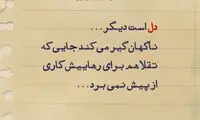 دل است دیگر...
ناگهان گیر می کند جایی که
تقلا هم برای رهاییش کاری
از پیش نمی برد...